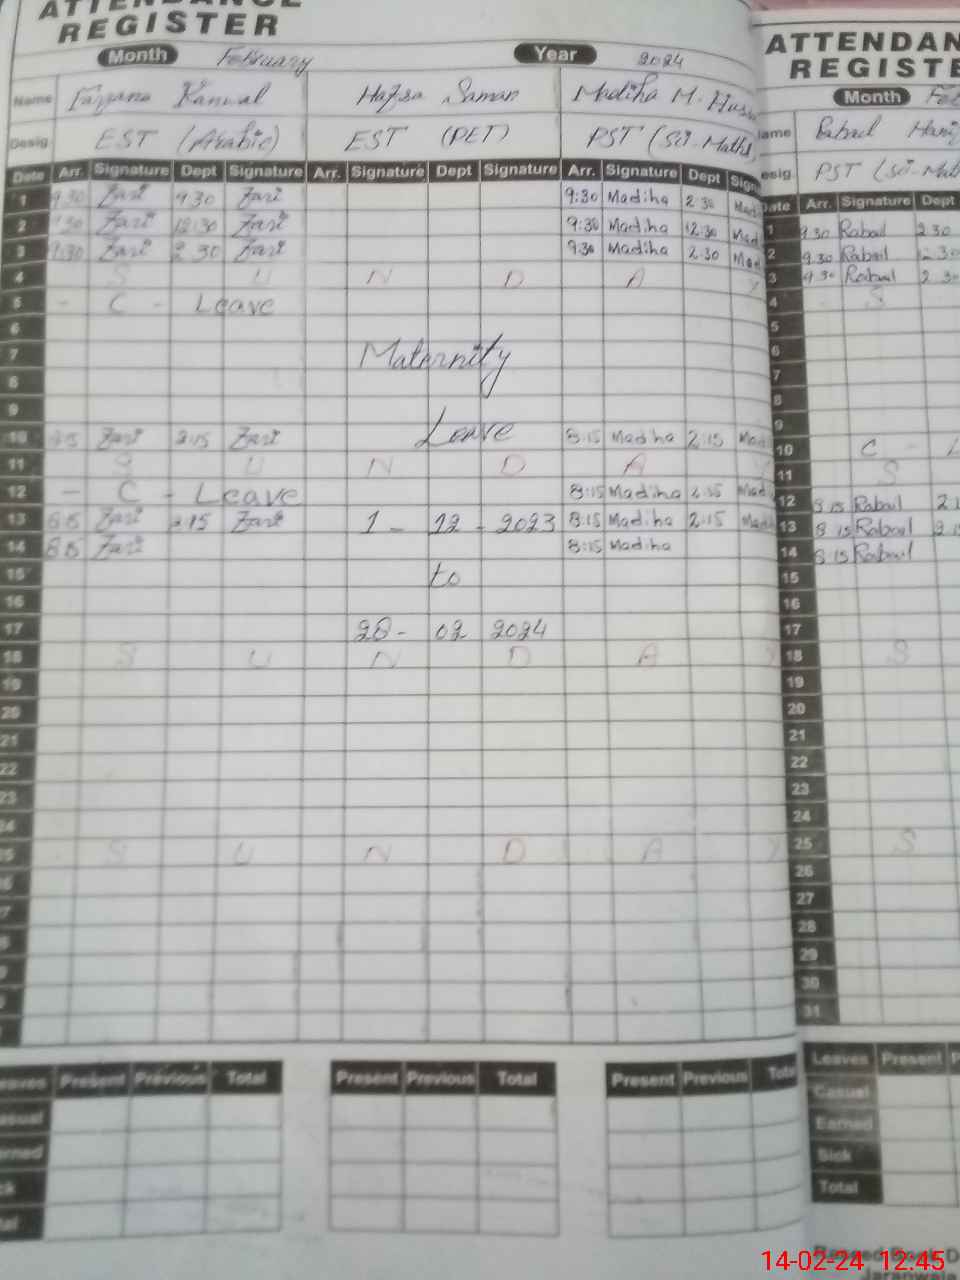 ATTENDANCE
REGISTER
Month February Year 2024
Name Farzana Kanwal Hafsa Saman Madiha M. Huss
Desig EST (Arabic) EST (PET) PST (Sci-Maths)
Date Arr. Signature Dept Signature Arr. Signature Dept Signature Arr. Signature Dept Sign
1 9:30 Zari 9 30 Zari 9:30 Madiha 2 30 Mad
2 9:30 Zari 12:30 Zari 9:30 Madiha 12:30 Mad
3 9:30 Zari 2 30 Zari 9:30 Madiha 2:30 Mad
4 S U N D A Y
5 - C - Leave
6
7 Maternity
8
9
10 8:15 Zari 2:15 Zari Leave 8:15 Madiha 2:15 Mad
11 S U N D A Y
12 - C - Leave 8:15 Madiha 2:15 Mad
13 8:15 Zari 2:15 Zari 1 - 12 - 2023 8:15 Madiha 2:15 Mad
14 8:15 Zari 8:15 Madiha
15 to
16
17 28 - 02 2024
18 S U N D A Y
19
20
21
22
23
24
25 S U N D A Y
Present Previous Total Present Previous Total Present Previous Total
ATTENDAN
REGISTE
Month Feb
Name Rabail Hani
Desig PST (Sci-Mat
Date Arr. Signature Dept
1 9 30 Rabail 2 30
2 9.30 Rabail 12:30
3 9.30 Rabail 2 30
4 S
5
6
7
8
9
10 C - L
11 S
12 8 15 Rabail 2 1
13 8 15 Rabail 2 15
14 8:15 Rabail
15
16
17
18 S
19
20
21
22
23
24
25 S
26
27
28
29
30
31
Leaves Present P
Casual
Earned
Sick
Total
14-02-24 12:45